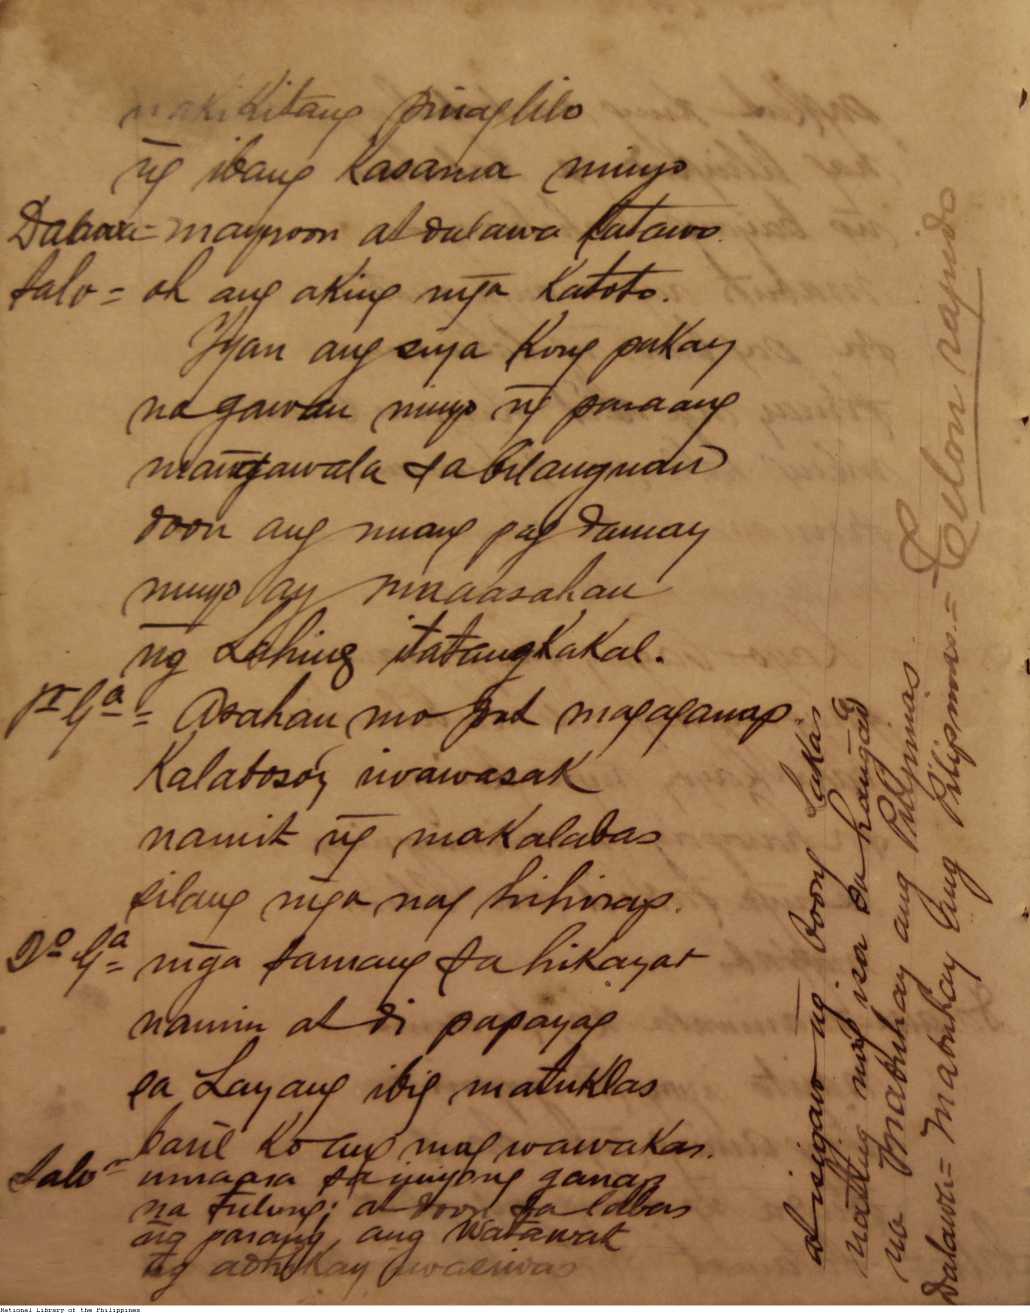 nakikitang pinaglilo
ñg ibang kasama ninyo
Dalawa = mayroon at dalawa katawo
Salo = oh ang aking mga katoto.
Iyan ang siya kong pakay
na gawan ninyo ñg paraang
mangawala sa bilanguan
doon ang inyong pag damay
ninyo ay maaasahan
ñg Lahing itatangkakal.
1ª Gª = Asahan mo magaganap
Kalabosoy iwawasak
namit ñg makalabas
silang mga nag hihirap.
Dº Gª = mga samang sa hikayat
namin at di papayag
sa Layang ibig matuklas
baril ko ang mag wawakas.
Salo = umaasa sa inyong ganap
na tulong; at doon sa labas
ñg parang ang Watawat
ñg adhikay iwasiwas
at isigaw ñg boong Lakas
nating may isa sa hangad
na Mabuhay ang Pilipinas
Dalawa = Mabuhay ang Pilipinas. = Telon rapido